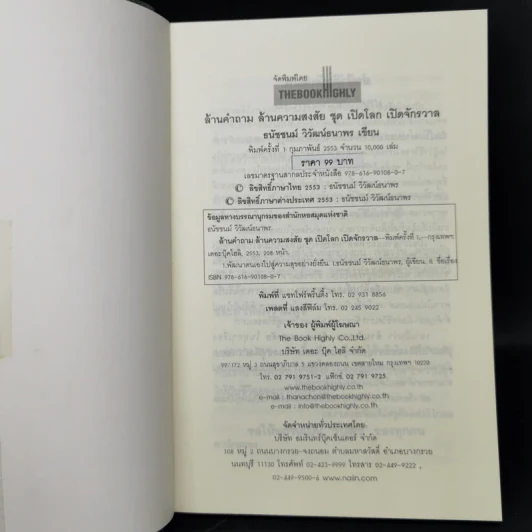 จัดพิมพ์โดย
THEBOOKHIGHLY
ล้านคำถาม ล้านความสงสัย ชุด เปิดโลก เปิดจักรวาล
ธนัชชนม์ วิวัฒน์ธนาพร เขียน
พิมพ์ครั้งที่ 1 กุมภาพันธ์ 2553 จำนวน 10,000 เล่ม
ราคา 99 บาท
เลขมาตรฐานสากลประจำหนังสือ 978-616-90108-0-7
© ลิขสิทธิ์ภาษาไทย 2553 : ธนัชชนม์ วิวัฒน์ธนาพร
© ลิขสิทธิ์ภาษาต่างประเทศ 2553 : ธนัชชนม์ วิวัฒน์ธนาพร
ข้อมูลทางบรรณานุกรมของสำนักหอสมุดแห่งชาติ
ธนัชชนม์ วิวัฒน์ธนาพร
ล้านคำถาม ล้านความสงสัย ชุด เปิดโลก เปิดจักรวาล--พิมพ์ครั้งที่ 1.--กรุงเทพฯ
เดอะบุ๊คไฮลี่, 2553. 208 หน้า.
1.พัฒนาตนเองไปสู่ความสุขอย่างยั่งยืน. I.ธนัชชนม์ วิวัฒน์ธนาพร, ผู้เขียน. II. ชื่อเรื่อง
ISBN 978-616-90108-0-7
พิมพ์ที่ แชทโฟร์พริ้นติ้ง โทร. 02 931 8856
เพลตที่ แสงสีฟิล์ม โทร. 02 245 9022
เจ้าของ ผู้พิมพ์ผู้โฆษณา
The Book Highly Co.,Ltd.
บริษัท เดอะ บุ๊ค ไฮลี่ จำกัด
99/172 หมู่ 3 ถนนสุขาภิบาล 5 แขวงคลองถนน เขตสายไหม กรุงเทพฯ 10220
โทร. 02 791 9751-2 แฟ็กซ์ 02 791 9725
www.thebookhighly.co.th
e-mail : thanachon@thebookhighly.co.th
e-mail : info@thebookhighly.co.th
จัดจำหน่ายทั่วประเทศโดย
บริษัท อมรินทร์บุ๊คเซ็นเตอร์ จำกัด
108 หมู่ 2 ถนนบางกรวย-จงถนอม ตำบลมหาสวัสดิ์ อำเภอบางกรวย
นนทบุรี 11130 โทรศัพท์ 02-423-9999 โทรสาร 02-449-9222,
02-449-9500-6 www.naiin.com